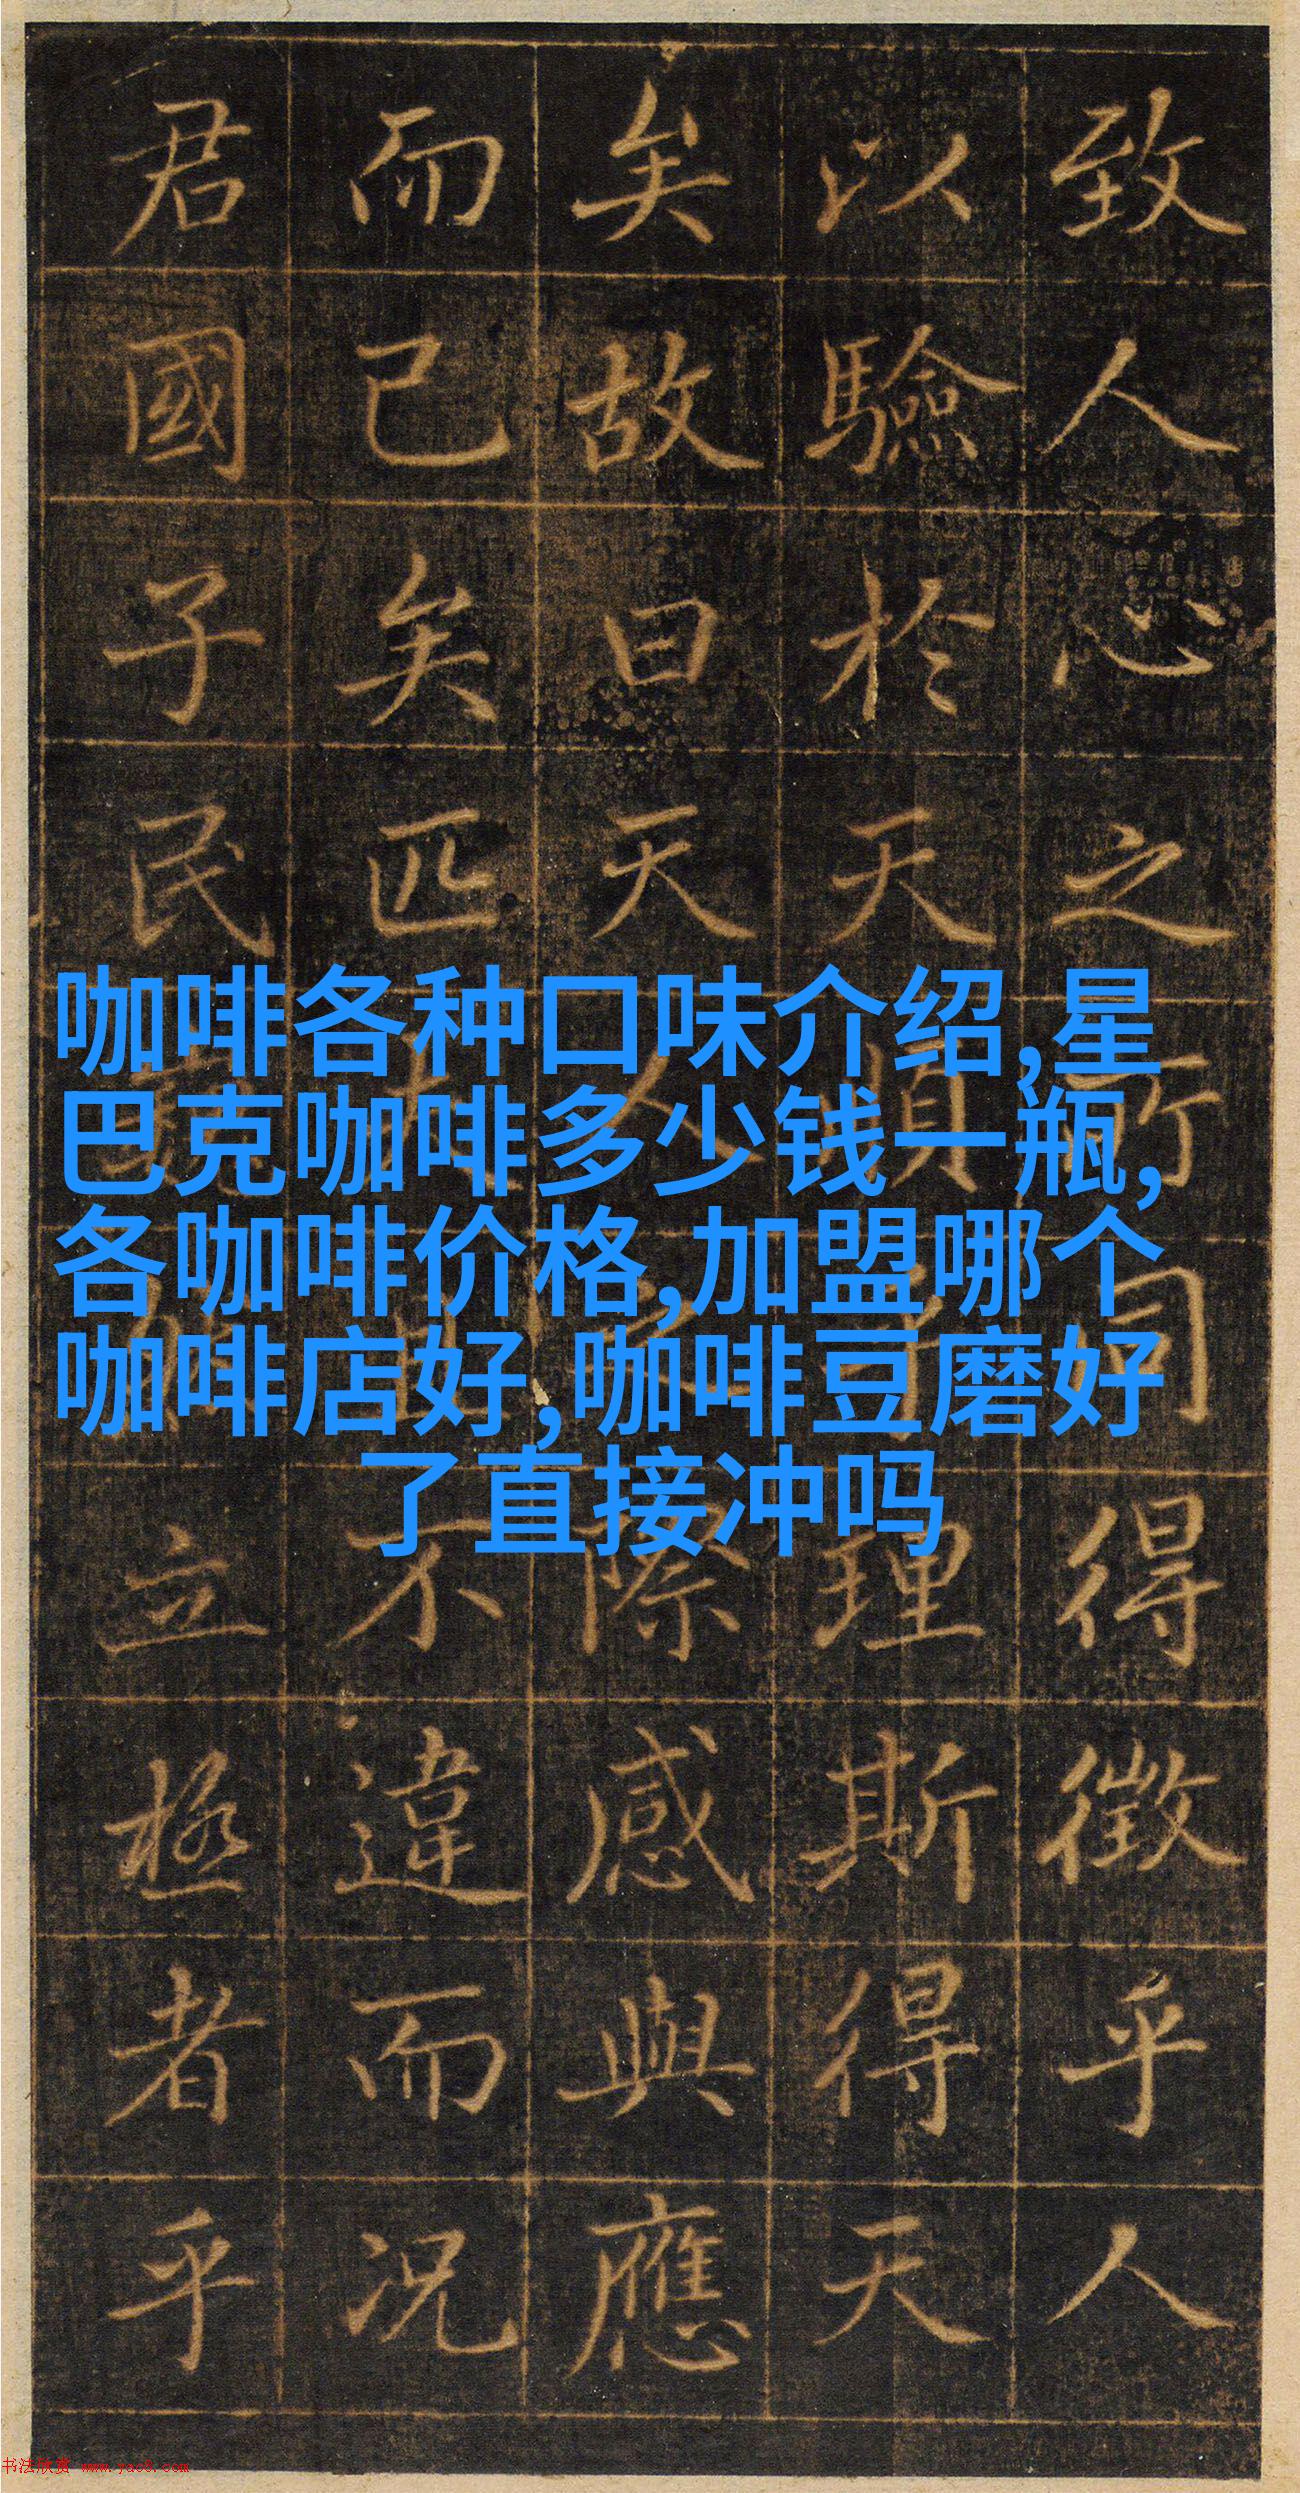 致人心之所同得徵乎人
以驗於天順乎理斯得天
矣故曰天人之際感與應
而已矣匹夫且不違而況
君國子民立極者乎
咖啡各种口味介绍,星
巴克咖啡多少钱一瓶,
各咖啡价格,加盟哪个
咖啡店好,咖啡豆磨好
了直接冲吗
书法欣赏 www.yac8.com